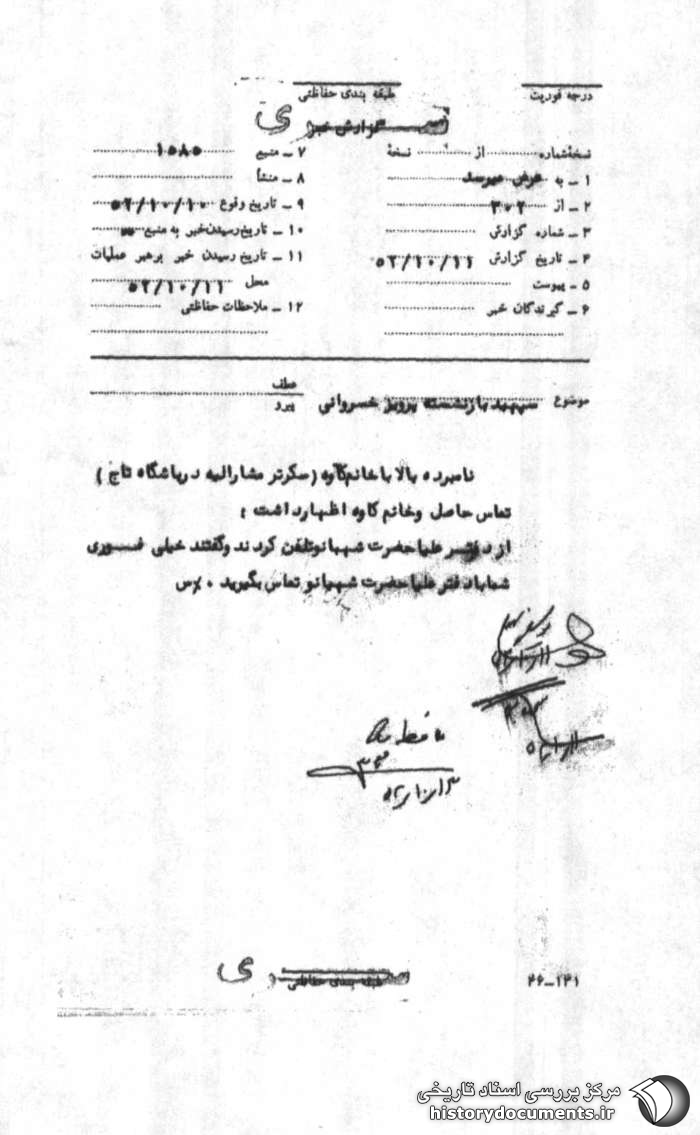 درجه فوریت
طبقه بندی حفاظتی
گزارش خبر
نسخهٔ شماره ............ از ............ نسخهٔ
۱ ـ به عرض میرسد
۲ ـ از ۳۰۲
۳ ـ شماره گزارش
۴ ـ تاریخ گزارش ۵۲/۱۰/۱۱
۵ ـ پیوست
۶ ـ گیرندگان خبر
۷ ـ منبع ۱۰۸۵
۸ ـ منشأ
۹ ـ تاریخ وقوع ۵۲/۱۰/۱۰
۱۰ ـ تاریخ رسیدن خبر به منبع
۱۱ ـ تاریخ رسیدن خبر برهبر عملیات
محل ۵۲/۱۰/۱۱
۱۲ ـ ملاحظات حفاظتی
موضوع سپهبد بازنشسته پرویز خسروانی
عطف
پیرو
نامبرده بالا با خانم کاوه (سکرتر مشارالیه در باشگاه تاج)
تماس حاصل و خانم کاوه اظهار داشت :
از دفتر علیاحضرت شهبانو تلفن کردند وگفتند خیلی فـوری
شما با دفتر علیاحضرت شهبانو تماس بگیرید .
طبقه بندی حفاظتی
۲۶ـ۱۴۱
مرکز بررسی اسناد تاریخی
historydocuments.ir